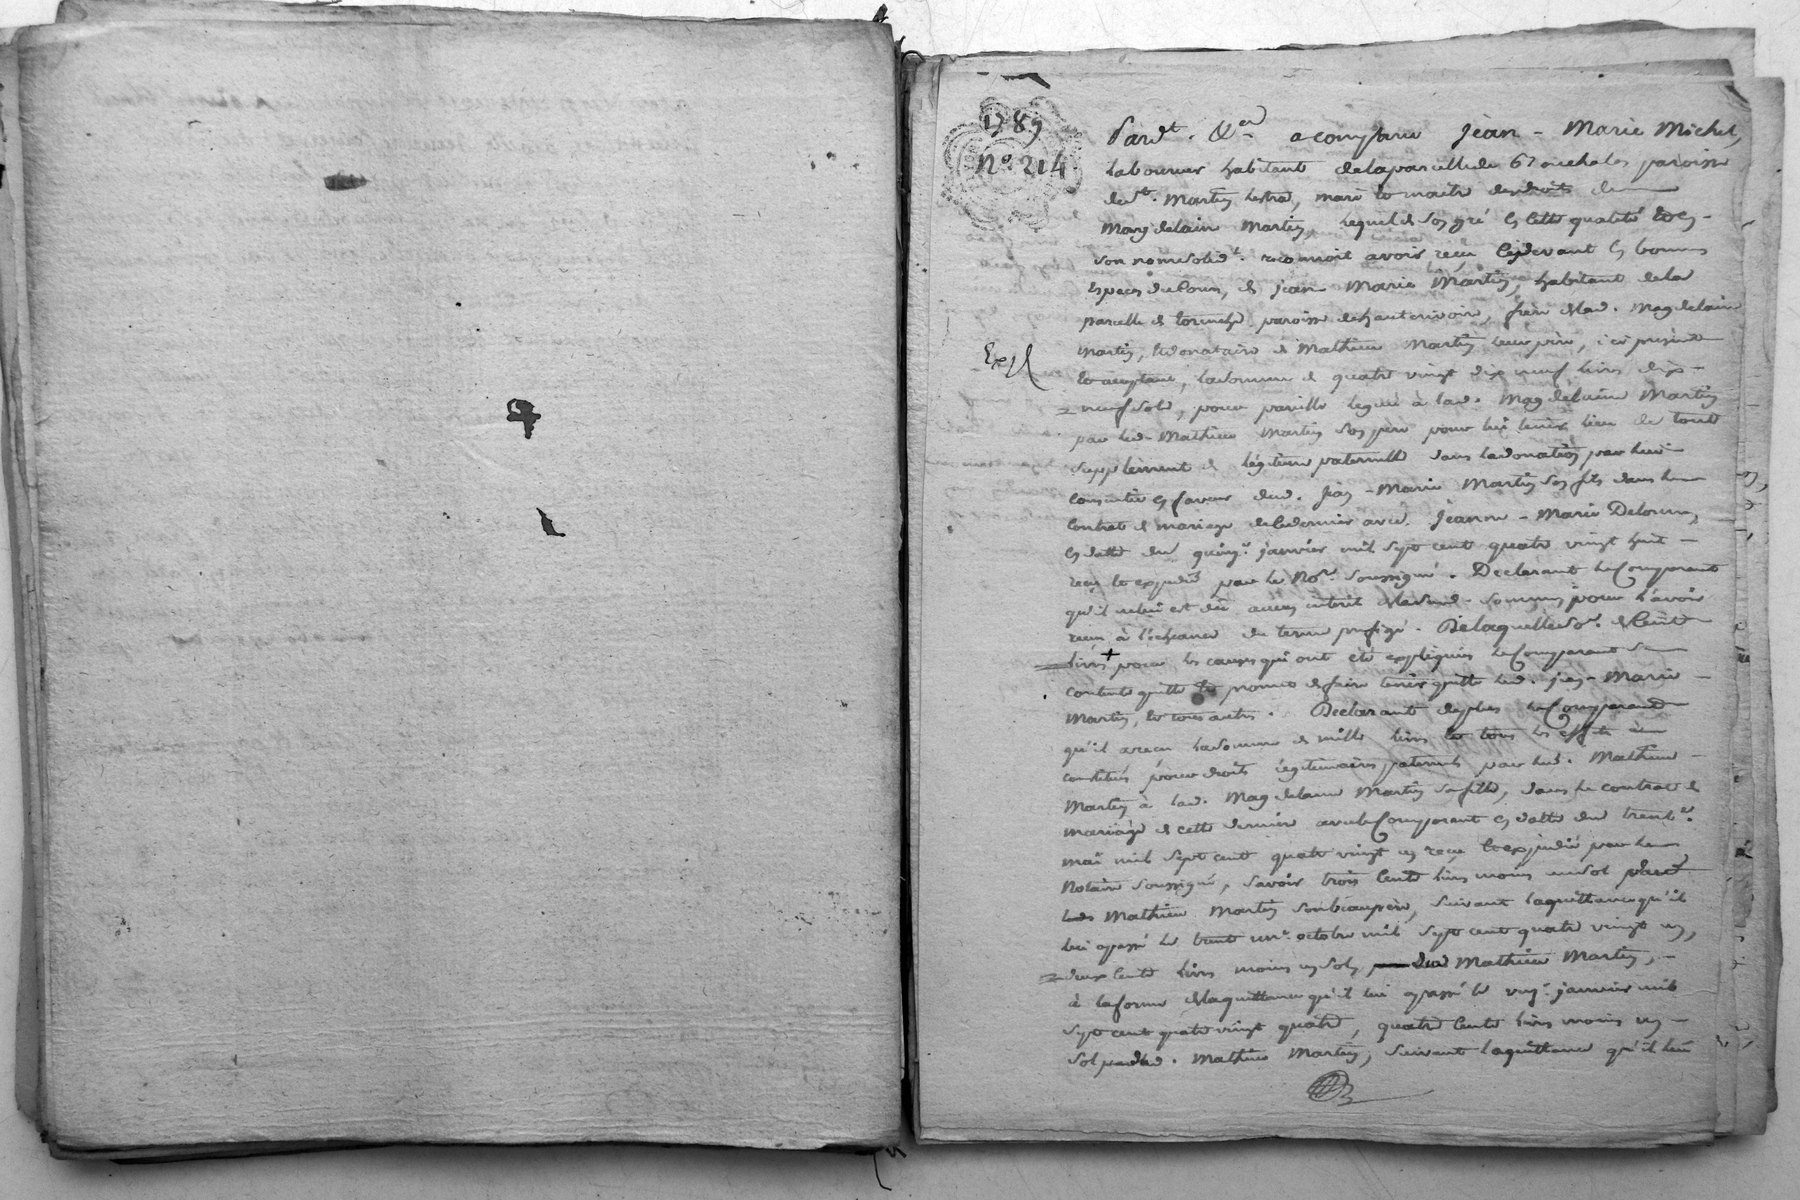 1789
N.º 214
Pardt. &ca a comparu Jean - Marie Michel,
laboureur habitant de la parcelle de paroisse
de st. Martin lestra, mari et maitre des droits de
Magdelaine Martin, lequel de son gré en cette qualité et en
son nom solidt. reconnoit avoir reçu cydevant en bonnes
espèces de cours, de jean Marie Martin, habitant de la
parcelle de paroisse de hauterivoire, frère de lad. Magdelaine
Martin, et donataire de Mathieu Martin leur père, ici présent
Exp
et acceptant, la somme de quatre vingt dix neuf livres dix-
neuf sols, pour pareille leguée à lad. Magdelaine Martin
par led. Mathieu Martin son père pour lui tenir lieu de tout
supplement de légitime paternelle dans la donation par lui
consentie en faveur dud. Jean - Marie Martin son fils dans le
contrat de mariage de ce dernier avec Jeanne - Marie Delorme,
en datte du quinze janvier mil sept cent quatre vingt huit
reçu et expédié par le Nore. soussigné. Déclarant le comparant
qu'il ne lui est dû aucun intérêt de lad. somme pour l'avoir
reçu à l'échéance du terme préfigé. De laquelle so. de cent
livres + pour les causes qui ont été expliquées le comparant se
contente quitte et promet de faire tenir quitte led. jean - Marie
Martin, et tous autres. Déclarant de plus le comparant
qu'il a reçu la somme de mille livres et tous les effets à
constitués pour droits légitimaires paternels par led. Mathieu
Martin à lad. Magdelaine Martin sa fille, dans le contrat de
mariage de cette dernière avec le comparant en datte du trente
mai mil sept cent quatre vingt un reçu et expédié par le
Notaire soussigné, savoir trois cents livres moins un sol
Mathieu Martin son beau père, suivant la quittance qu'il
lui a passé le trente un octobre mil sept cent quatre vingt un,
deux cents livres moins un sol, dud Mathieu Martin,
à la forme de la quittance qu'il lui a passé le janvier mil
sept cent quatre vingt quatre, quatre cents livres moins un
sol par led. Mathieu Martin, suivant la quittance qu'il lui